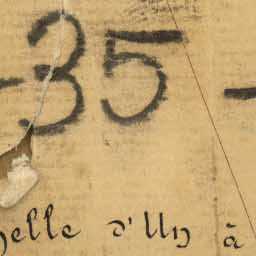 -35-
elle d'Un à